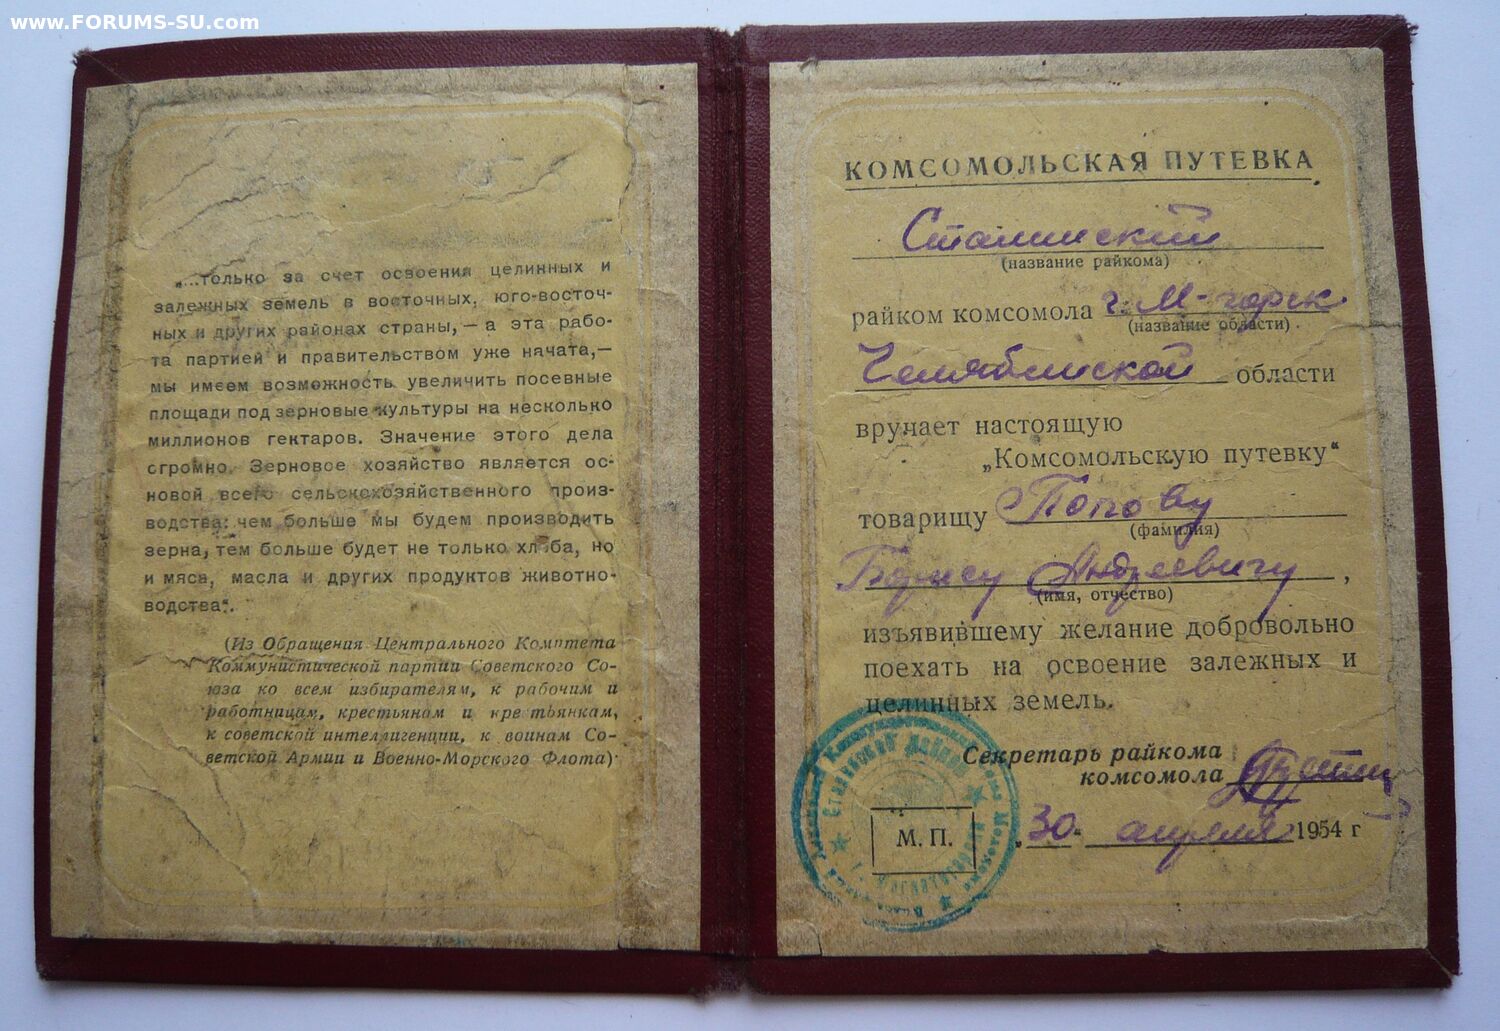 www.FORUMS-SU.com
„...только за счет освоения целинных и
залежных земель в восточных, юго-восточ-
ных и других районах страны,—а эта рабо-
та партией и правительством уже начата,—
мы имеем возможность увеличить посевные
площади под зерновые культуры на несколько
миллионов гектаров. Значение этого дела
огромно. Зерновое хозяйство является ос-
новой всего сельскохозяйственного произ-
водства: чем больше мы будем производить
зерна, тем больше будет не только хлеба, но
и мяса, масла и других продуктов животно-
водства“.
(Из Обращения Центрального Комитета
Коммунистической партии Советского Со-
юза ко всем избирателям, к рабочим и
работницам, крестьянам и крестьянкам,
к советской интеллигенции, к воинам Со-
ветской Армии и Военно-Морского Флота)
КОМСОМОЛЬСКАЯ ПУТЕВКА
Сталинский
(название райкома)
райком комсомола г. М-горск
(название области)
Челябинской области
вручает настоящую
„Комсомольскую путевку“
товарищу Попову
(фамилия)
Борису Андреевичу,
(имя, отчество)
изъявившему желание добровольно
поехать на освоение залежных и
целинных земель.
Секретарь райкома
комсомола
М. П.
„30“ апреля 1954 г